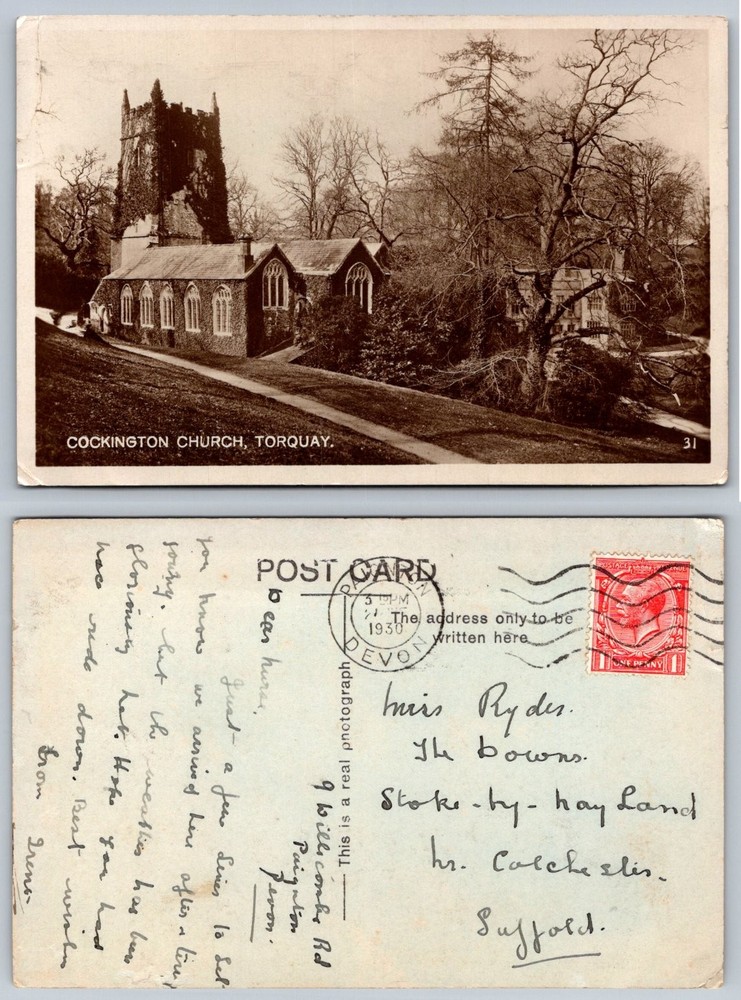 COCKINGTON CHURCH, TORQUAY.
31
POST CARD
PAIGNTON
3 PM
1930
DEVON
The address only to be
written here
POSTAGE REVENUE
1 ONE PENNY 1
This is a real photograph
9 Willscombe Rd
Paignton
Devon.
Dear Nurse,
Just a few lines to let
you know we arrived here after a
journey. but the weather has been
glorious hot. Hope you had
nice down. Best wishes
From Irene.
Miss Ryder.
The Downs.
Stoke-by-Nayland
Nr. Colchester.
Suffolk.